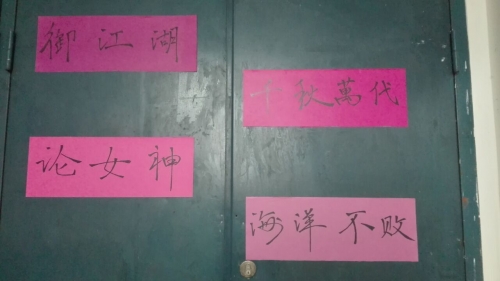 御江湖
千秋萬代
论女神
海洋不败